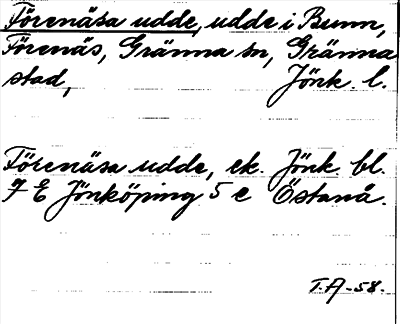 Förenäsa udde, udde i Bunn,
Förenäs, Gränna sn, Gränna
stad, Jönk. l.
Förenäsa udde, ek. Jönk. bl.
7 E Jönköping 5 e Östanå.
T.A-58.